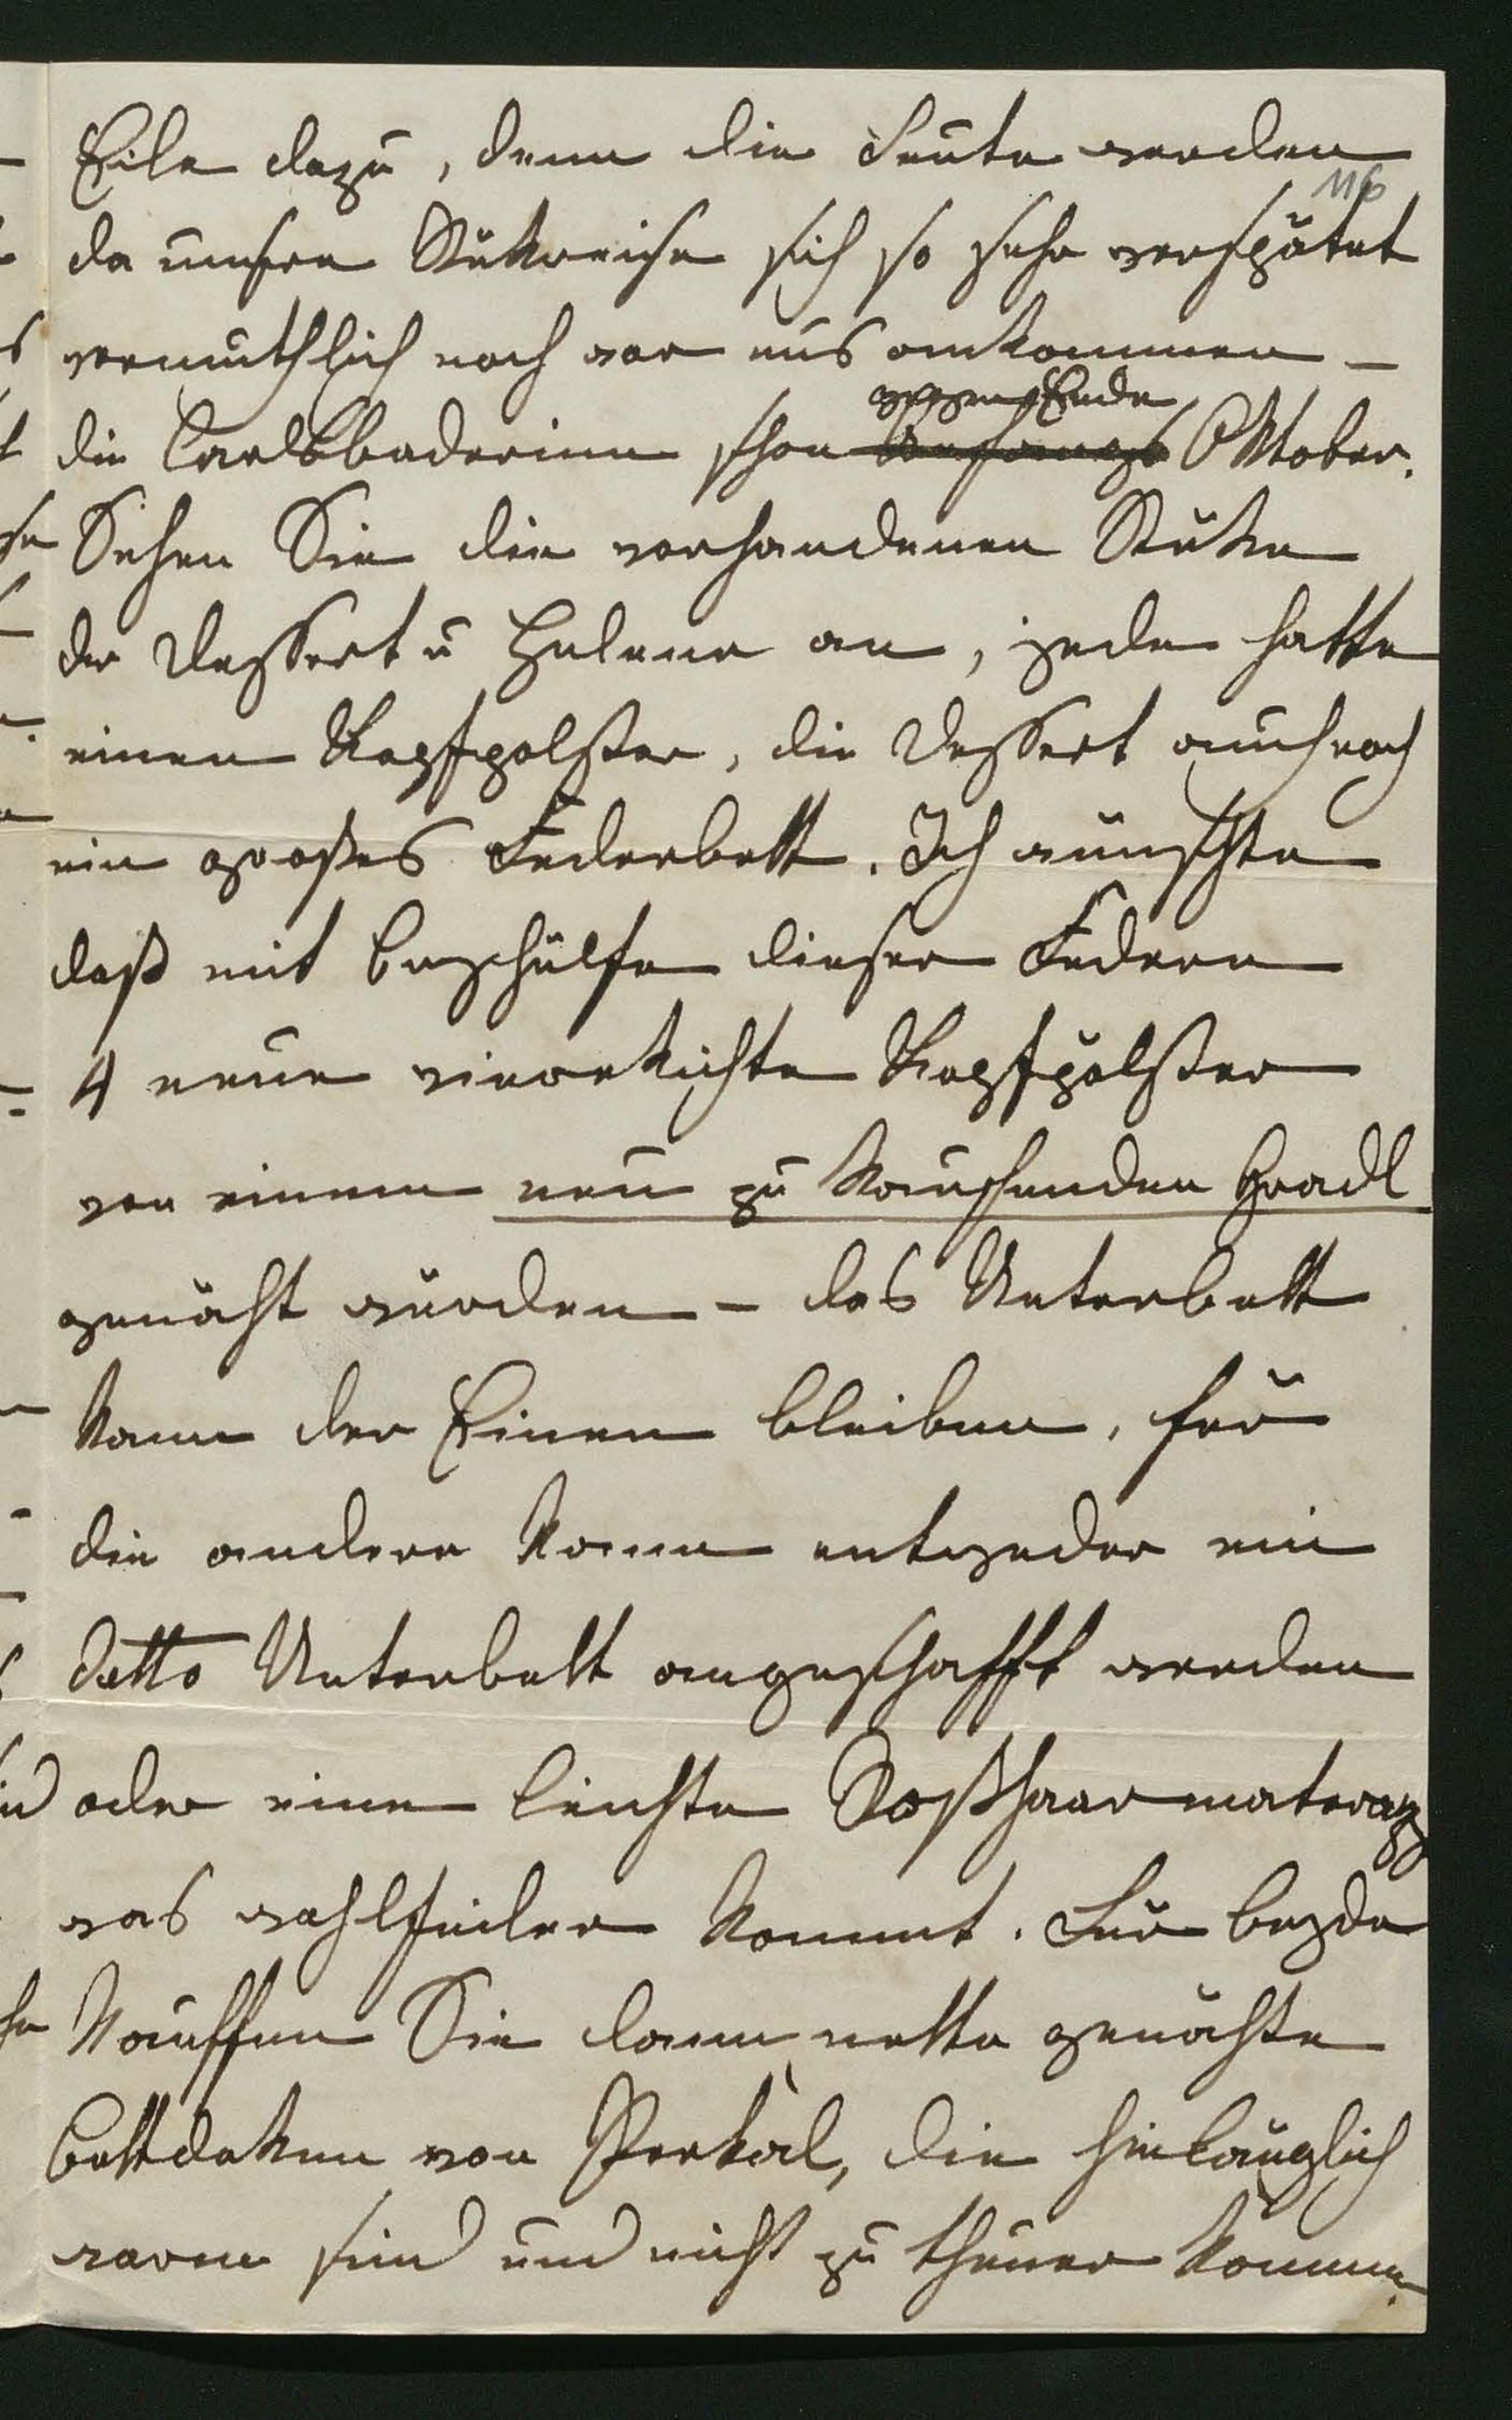 Eile dazu, denn die Leute werden
116
da unsere Rükreise sich so sehr verspätet
vermuthlich noch vor uns ankommen –
gegen Ende
die Carlsbaderinn schon Anfangs Oktober.
Sehen Sie die vorhandenen Stüke
der Dessert u Helene an, jede hatte
einen Kopfpolster, die Dessert auch noch
ein großes Federbett. Ich wünschte
daß mit Beyhülfe dieser Federn
4 neue vierekichte Kopfpölster
von einem neu zu kaufenden Gradl
genäht würden – das Unterbett
kann der Einen bleiben, für
die andere kann entweder ein
detto Unterbett angeschafft werden
oder eine leichte Roßhaarmatraz
was wohlfeiler kommt. Für beyde
kauffen Sie dann nette genähte
Bettdeken von Perkal, die hinlänglich
warm sind und nicht zu theuer kommen.